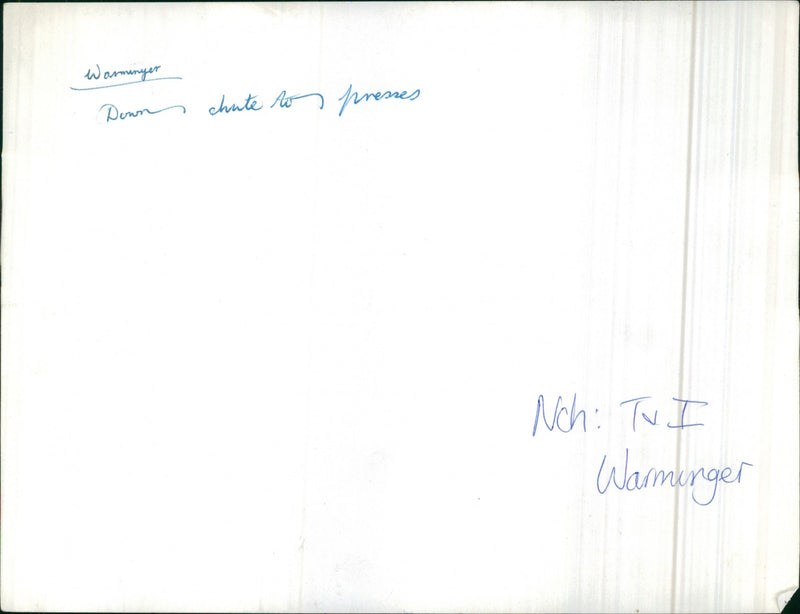 Warminger
Down chute to presses
Nch: T v I
Warminger